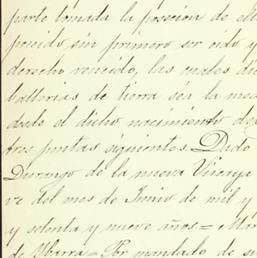 parte tomada la posecion de ell
poseido sin primero ser oido y
derecho vencido, las cuales di
batterias de tierra sen la med
dade el dicho nacimiento de
tres juntas siguientes. Dado
Durango de la nueva Viscaya
ve del mes de Junio de mil y
y setenta y nueve años = Mar
de Ybarra = Por mandado de su